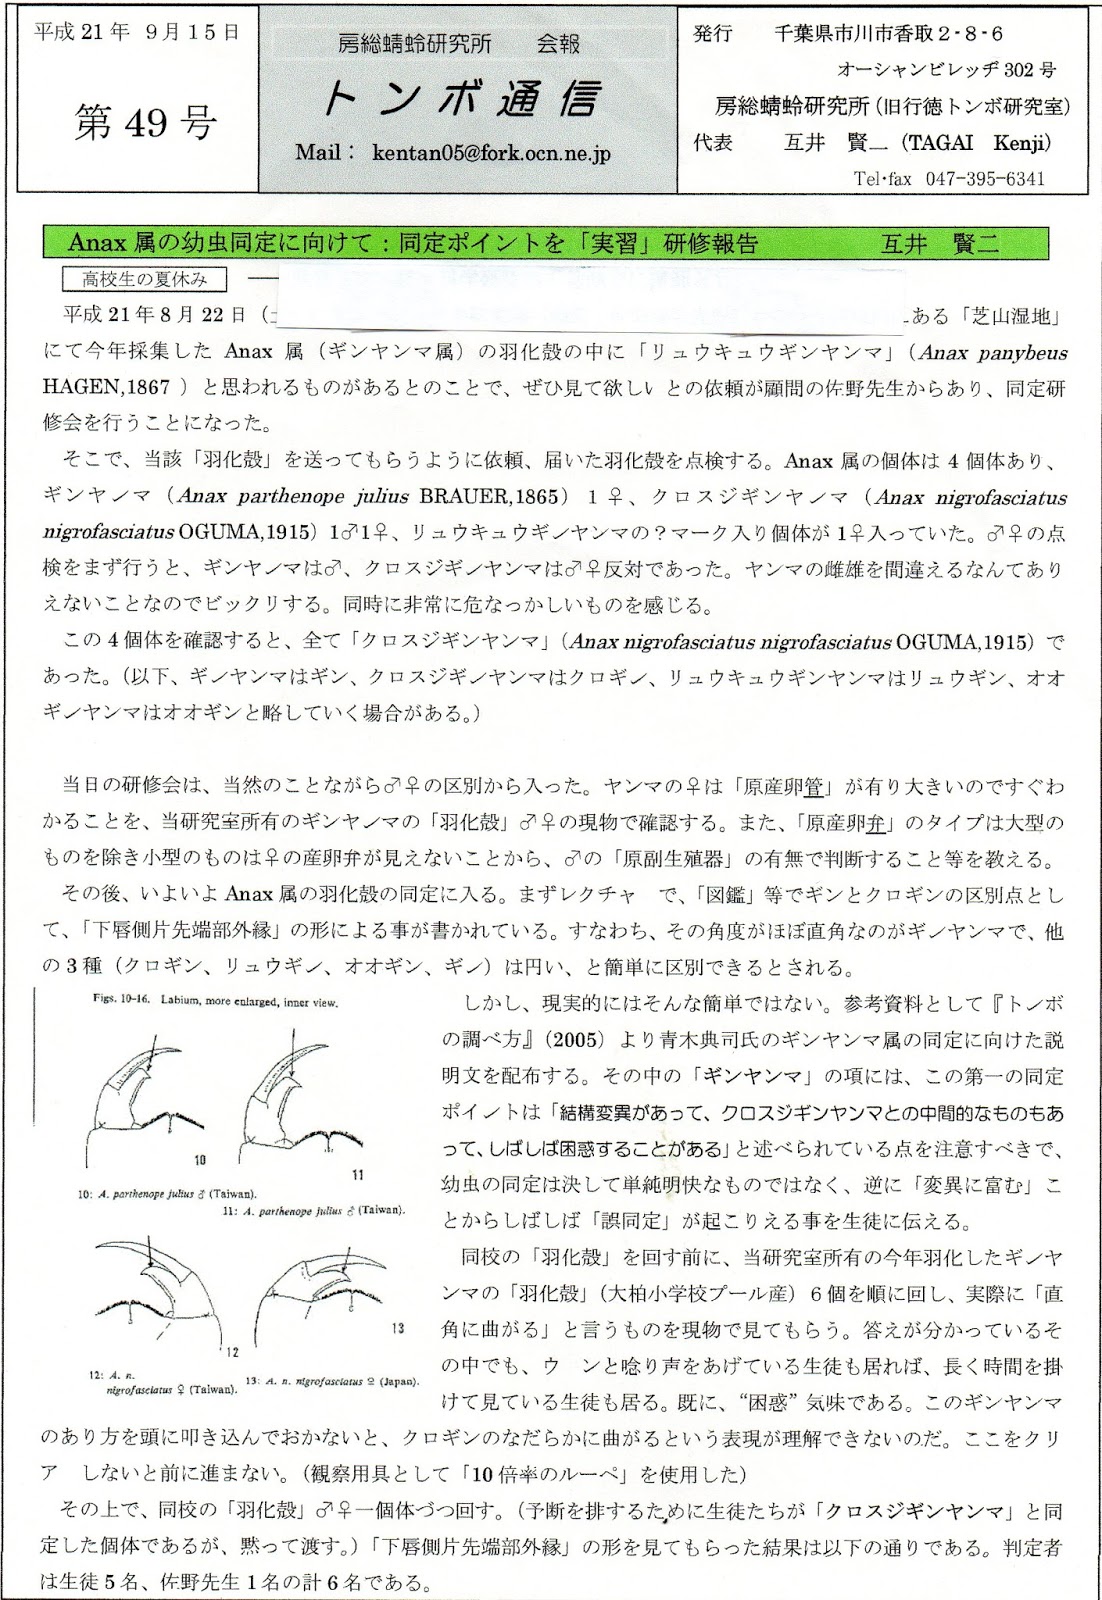 平成 21 年 9月15日
第 49 号
房総蜻蛉研究所 会報
トンボ通信
Mail： kentan05@fork.ocn.ne.jp
発行 千葉県市川市香取2-8-6
オーシャンビレッヂ302号
房総蜻蛉研究所(旧行徳トンボ研究室)
代表 互井 賢二（TAGAI Kenji）
Tel･fax 047-395-6341
Anax 属の幼虫同定に向けて：同定ポイントを「実習」研修報告 互井 賢二
高校生の夏休み
平成 21 年 8 月 22 日（ ある「芝山湿地」
にて今年採集した Anax 属（ギンヤンマ属）の羽化殻の中に「リュウキュウギンヤンマ」（Anax panybeus
HAGEN,1867 ）と思われるものがあるとのことで、ぜひ見て欲しいとの依頼が顧問の佐野先生からあり、同定研
修会を行うことになった。
そこで、当該「羽化殻」を送ってもらうように依頼、届いた羽化殻を点検する。Anax 属の個体は 4 個体あり、
ギンヤンマ（Anax parthenope julius BRAUER,1865）1♀、クロスジギンヤンマ（Anax nigrofasciatus
nigrofasciatus OGUMA,1915）1♂1♀、リュウキュウギンヤンマの？マーク入り個体が 1♀入っていた。♂♀の点
検をまず行うと、ギンヤンマは♂、クロスジギンヤンマは♂♀反対であった。ヤンマの雌雄を間違えるなんてあり
えないことなのでビックリする。同時に非常に危なっかしいものを感じる。
この 4 個体を確認すると、全て「クロスジギンヤンマ」（Anax nigrofasciatus nigrofasciatus OGUMA,1915）で
あった。（以下、ギンヤンマはギン、クロスジギンヤンマはクロギン、リュウキュウギンヤンマはリュウギン、オオ
ギンヤンマはオオギンと略していく場合がある。）
当日の研修会は、当然のことながら♂♀の区別から入った。ヤンマの♀は「原産卵管」が有り大きいのですぐわ
かることを、当研究室所有のギンヤンマの「羽化殻」♂♀の現物で確認する。また、「原産卵弁」のタイプは大型の
ものを除き小型のものは♀の産卵弁が見えないことから、♂の「原副生殖器」の有無で判断すること等を教える。
その後、いよいよ Anax 属の羽化殻の同定に入る。まずレクチャ で、「図鑑」等でギンとクロギンの区別点とし
て、「下唇側片先端部外縁」の形による事が書かれている。すなわち、その角度がほぼ直角なのがギンヤンマで、他
の 3 種（クロギン、リュウギン、オオギン、ギン）は円い、と簡単に区別できるとされる。
Figs. 10-16. Labium, more enlarged, inner view.
10
11
10: A. parthenope julius ♂ (Taiwan).
11: A. parthenope julius ♂ (Taiwan).
12
13
12: A. n.
nigrofasciatus ♀ (Taiwan).
13: A. n. nigrofasciatus ♀ (Japan).
しかし、現実的にはそんな簡単ではない。参考資料として『トンボ
の調べ方』（2005）より青木典司氏のギンヤンマ属の同定に向けた説
明文を配布する。その中の「ギンヤンマ」の項には、この第一の同定
ポイントは「結構変異があって、クロスジギンヤンマとの中間的なものもあ
って、しばしば困惑することがある」と述べられている点を注意すべきで、
幼虫の同定は決して単純明快なものではなく、逆に「変異に富む」こ
とからしばしば「誤同定」が起こりえる事を生徒に伝える。
同校の「羽化殻」を回す前に、当研究室所有の今年羽化したギンヤ
ンマの「羽化殻」（大柏小学校プール産）6 個を順に回し、実際に「直
角に曲がる」と言うものを現物で見てもらう。答えが分かっているそ
の中でも、ウ ンと唸り声をあげている生徒も居れば、長く時間を掛
けて見ている生徒も居る。既に、“困惑” 気味である。このギンヤンマ
のあり方を頭に叩き込んでおかないと、クロギンのなだらかに曲がるという表現が理解できないのだ。ここをクリ
ア しないと前に進まない。（観察用具として「10 倍率のルーペ」を使用した）
その上で、同校の「羽化殻」♂♀一個体づつ回す。（予断を排するために生徒たちが「クロスジギンヤンマ」と同
定した個体であるが、黙って渡す。）「下唇側片先端部外縁」の形を見てもらった結果は以下の通りである。判定者
は生徒 5 名、佐野先生 1 名の計 6 名である。